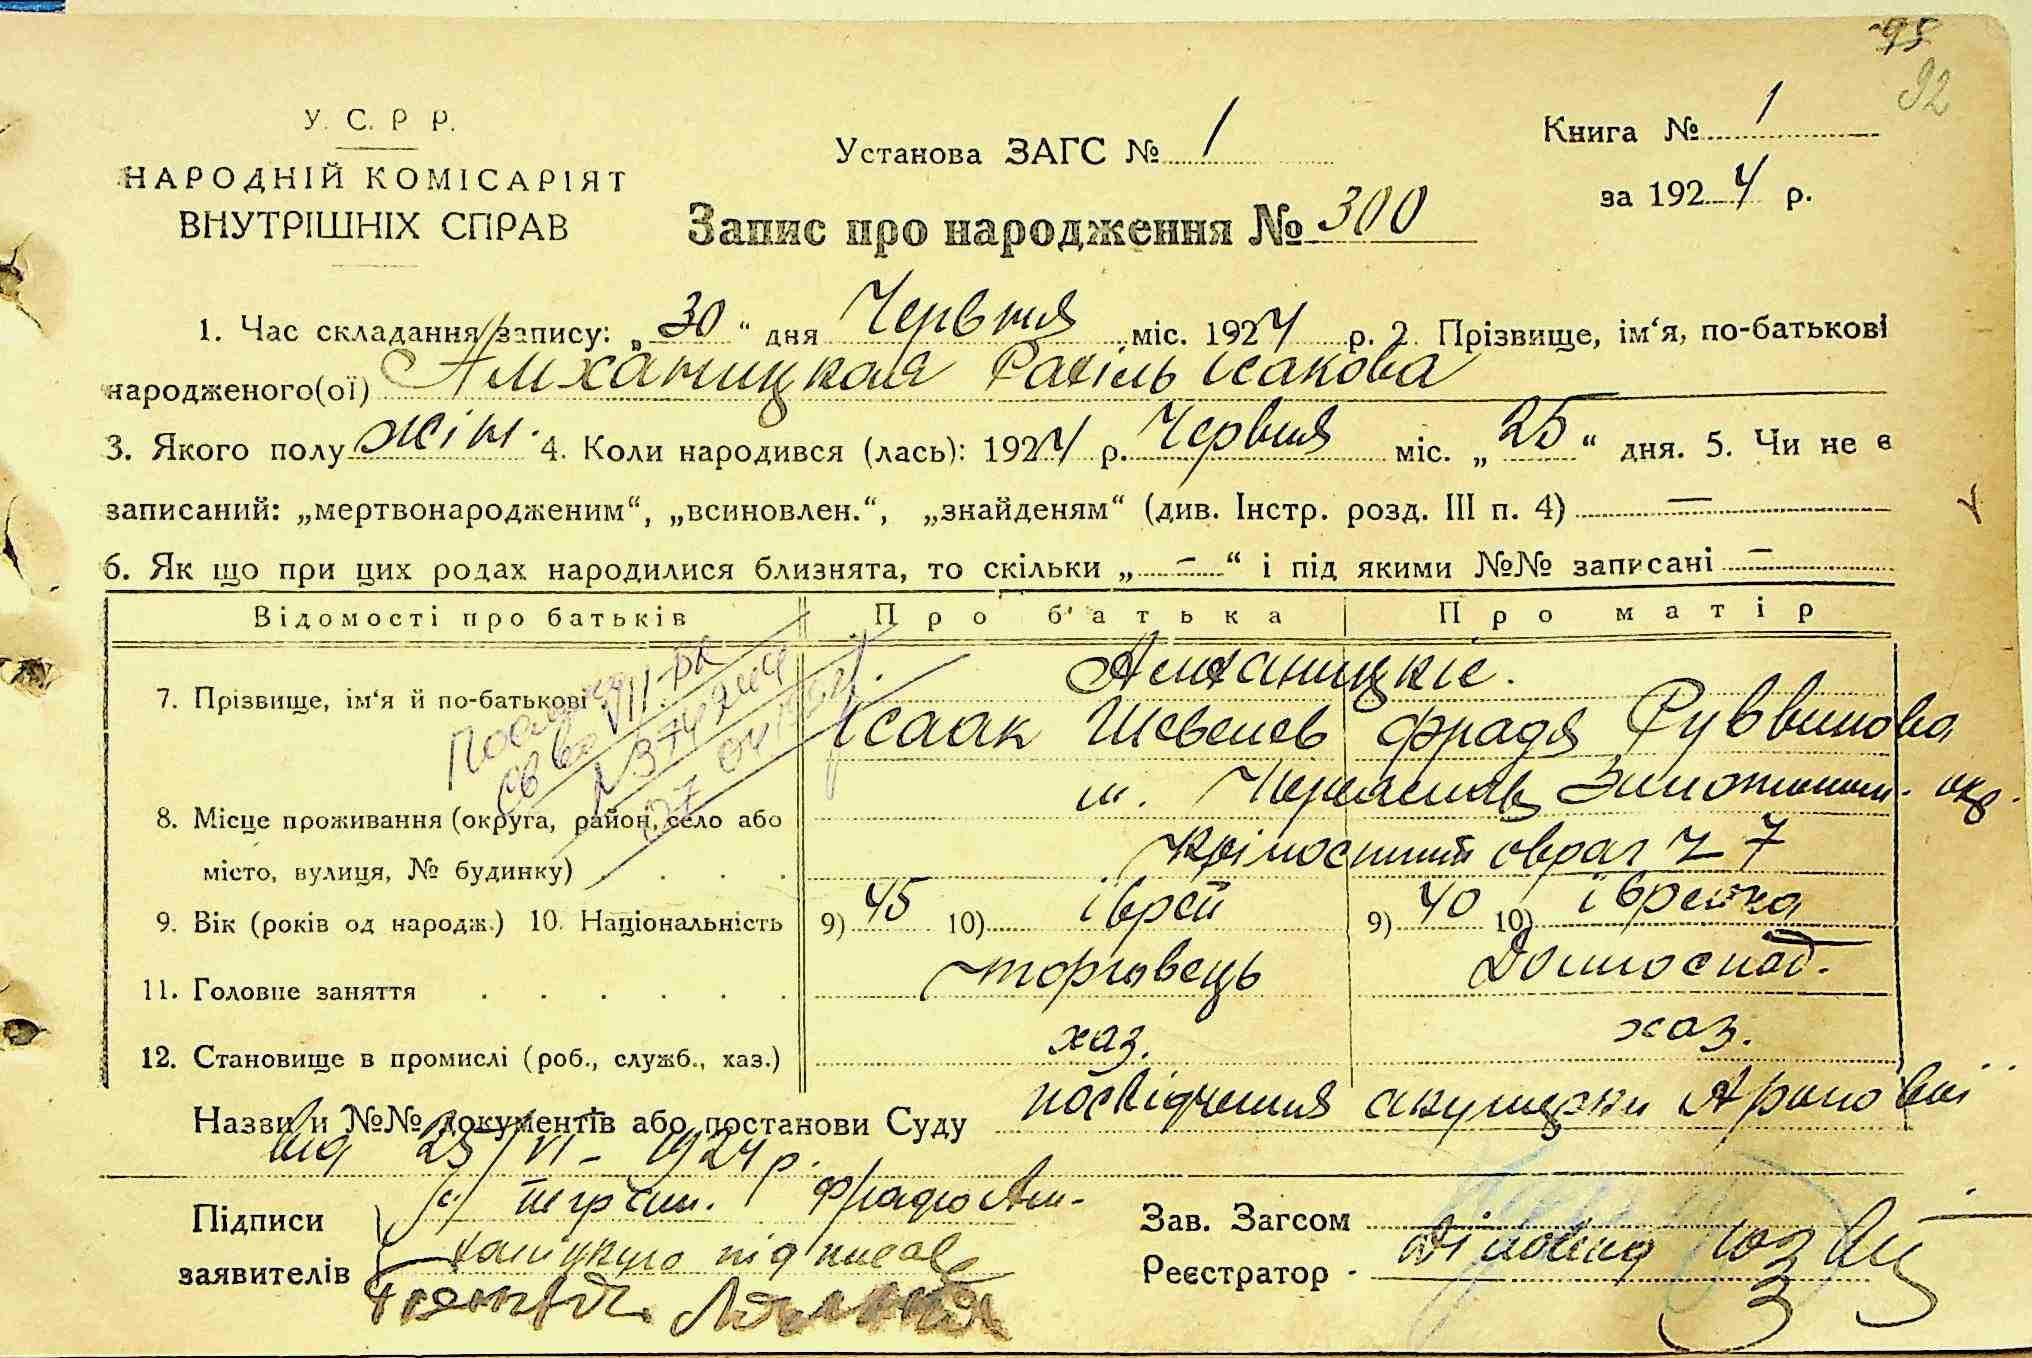 95
92
У. С. Р Р.
НАРОДНІЙ КОМІСАРІЯТ
ВНУТРІШНІХ СПРАВ
Установа ЗАГС № 1
Книга № 1
за 1924 р.
Запис про народження № 300
1. Час складання запису: „30“ дня Червня міс. 1924 р. 2. Прізвище, ім‘я, по-батькові
народженого(ої) Амханицкая Рахіль Ісакова
3. Якого полу жін. 4. Коли народився (лась): 1924 р. Червня міс. „25“ дня. 5. Чи не є
записаний: „мертвонародженим“, „всиновлен.“, „знайденям“ (див. Інстр. розд. III п. 4) —
6. Як що при цих родах народилися близнята, то скільки „ - “ і під якими №№ записані —
Відомості про батьків Про батька Про матір
7. Прізвище, ім‘я й по-батькові Амханицкіе.
Ісаак Шевелев Фрадя Рувинова
8. Місце проживання (округа, район, село або м. Переяслав окр.
місто, вулиця, № будинку) 7
9. Вік (років од народж.) 10. Національність 9) 45 10) іврей 9) 40 10) іврейка
11. Головне заняття торговець Домоспод.
12. Становище в промислі (роб., служб., хаз.) хаз. хаз.
Назви и №№ документів або постанови Суду посвідчення акушерки Аронової
від 25/VI - 1924 р.
Підписи
заявителів
підписав
Зав. Загсом
Реєстратор - Діловод